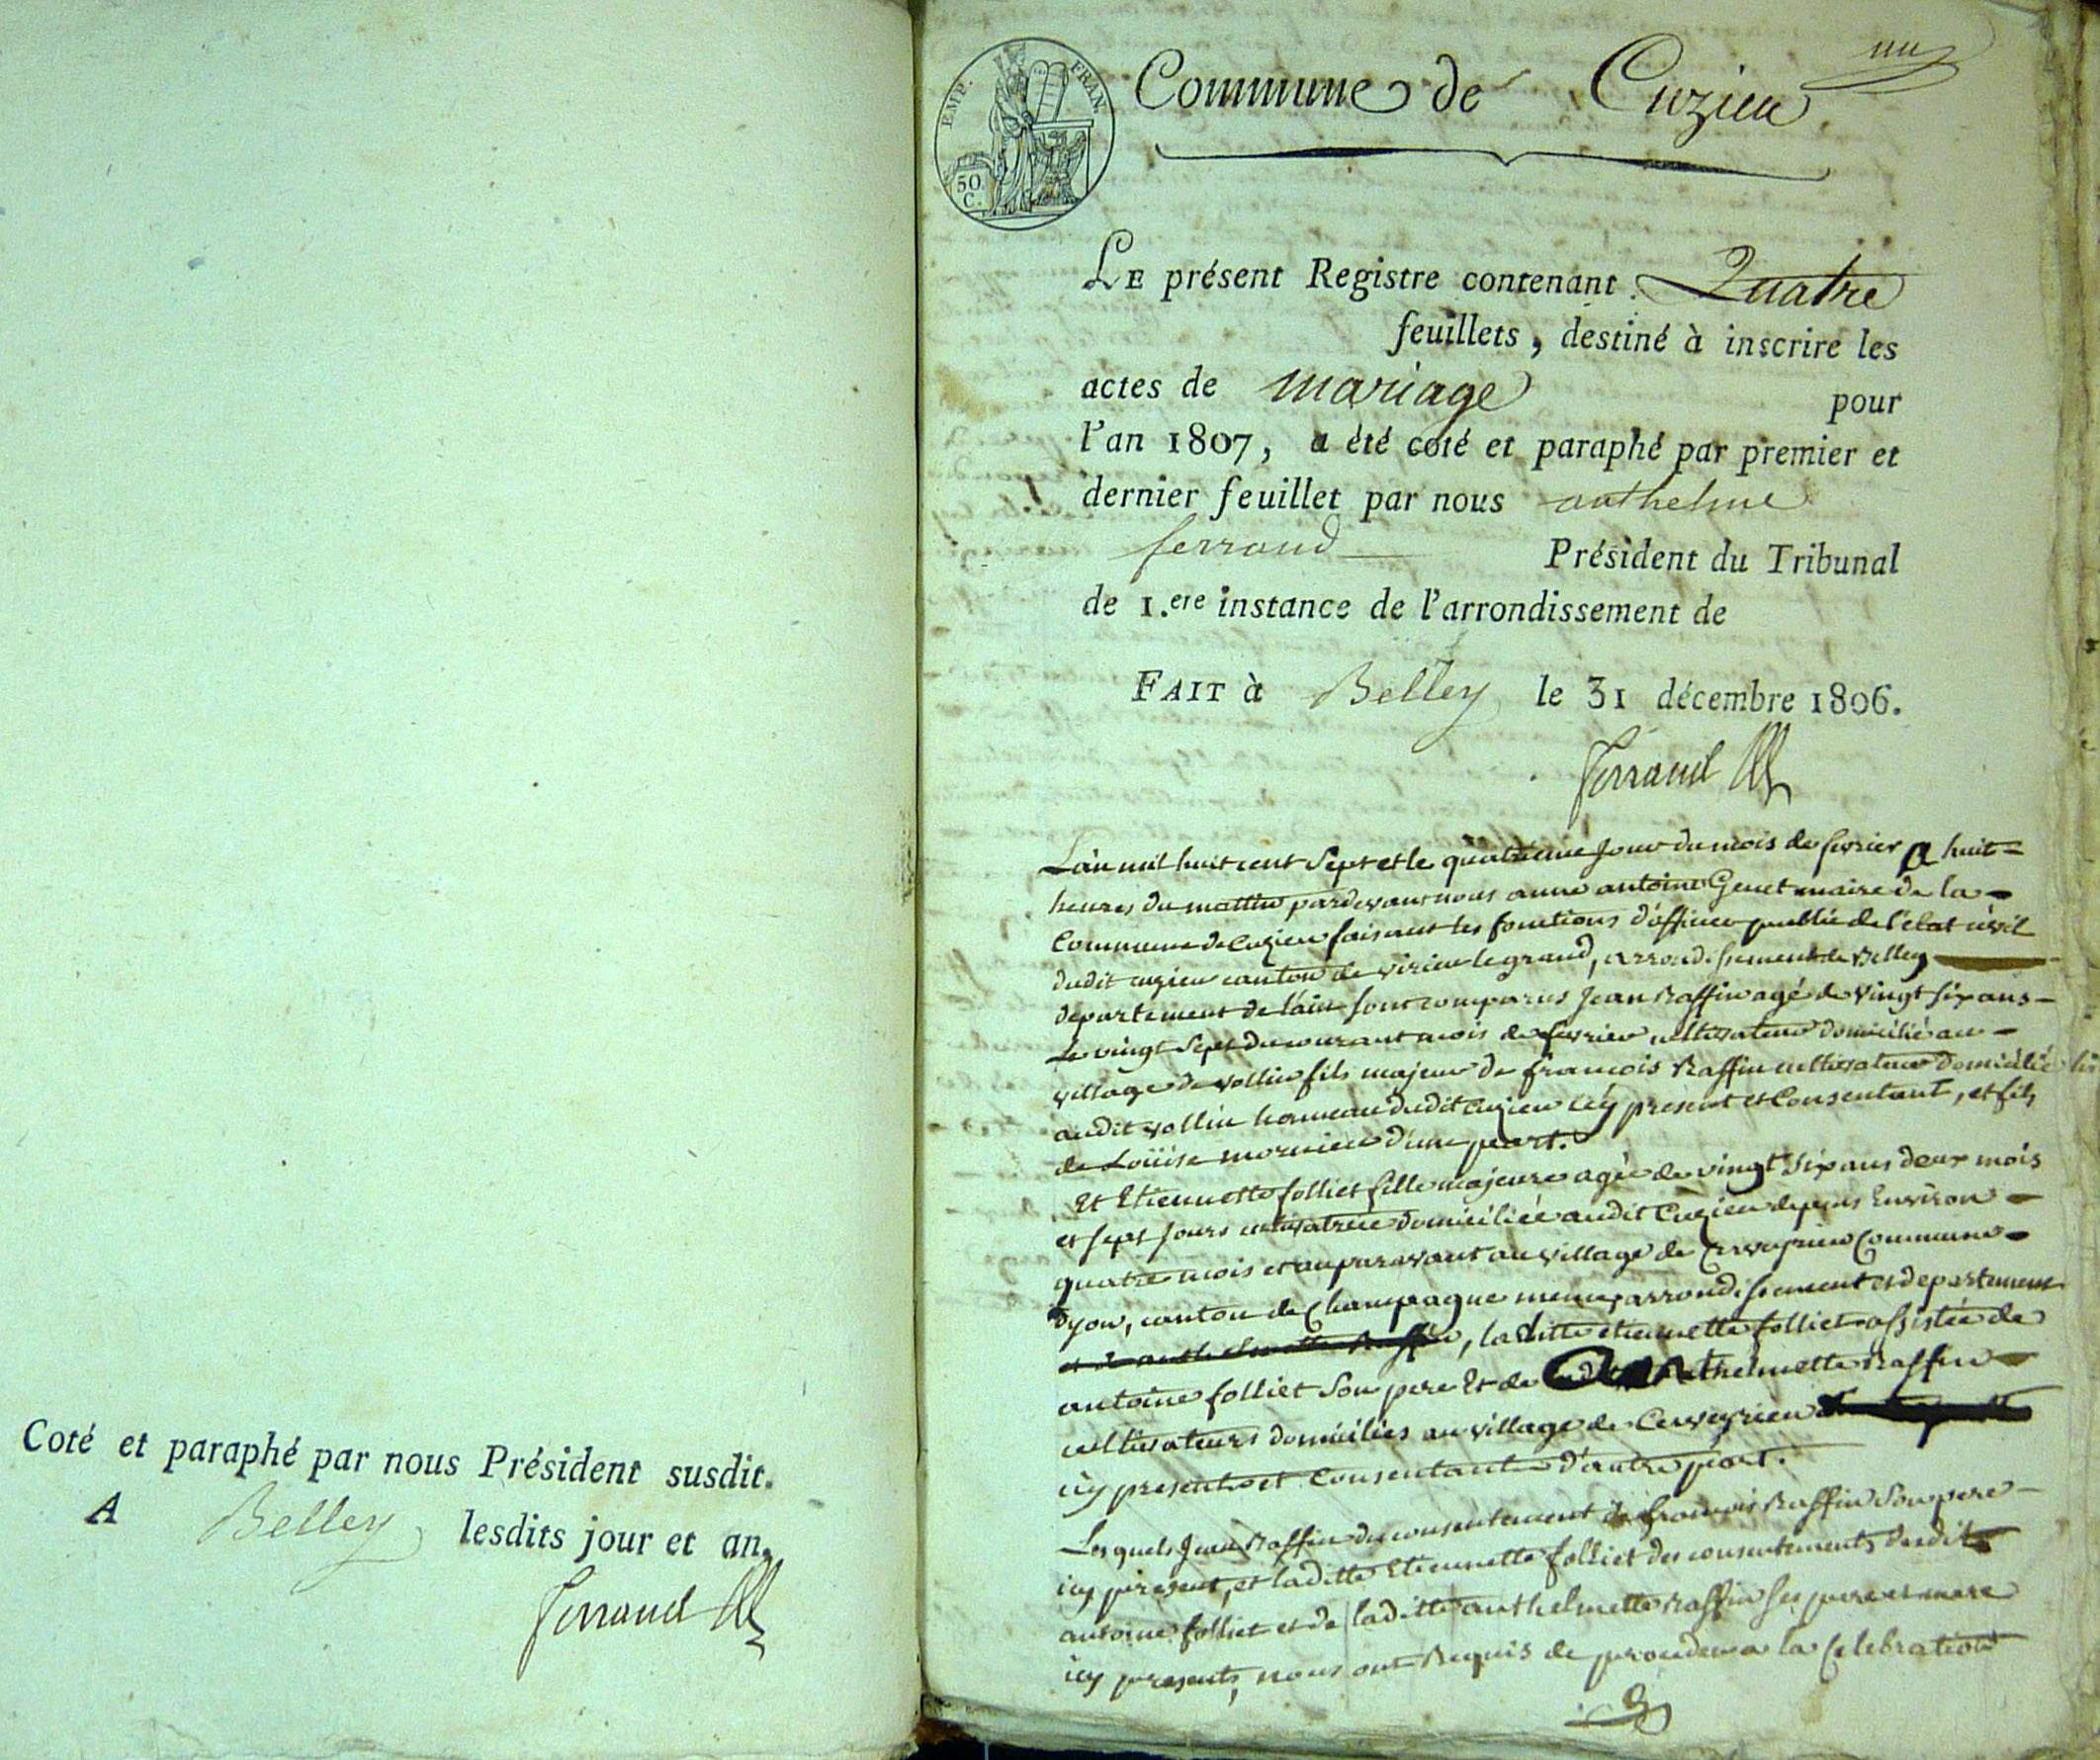 Coté et paraphé par nous Président susdit.
A Belley lesdits jour et an.
Ferrand
EMP. FRAN.
50 C.
Commune de Cuzieu
Le présent Registre contenant Quatre
feuillets, destiné à inscrire les
actes de mariage pour
l'an 1807, a été coté et paraphé par premier et
dernier feuillet par nous anthelme
ferrand Président du Tribunal
de 1.ere instance de l'arrondissement de
Fait à Belley le 31 décembre 1806.
Ferrand
L'an mil huit cent Sept et le quatrieme jour du mois de fevrier a huit
heures du mattin pardevant nous anne antoine Genet maire de la
Commune de Cuzieu faisant les fonctions d'officier public de l'état civil
dudit cuzieu canton de virieu le grand, arrondissement de Belley
departement de l'ain sont comparus Jean Raffin agé de vingt six ans
Le vingt Sept du courant mois de fevrier cultivateur domicilié au
village de vollin fils majeur de francois Raffin cultivateur domicilié
audit vollin hameau dudit cuzieu icy present et Consentant, et fils
de Loüise mornieu d'une part.
Et Etiennette folliet fille majeure agée de vingt six ans deux mois
et sept jours cultivatrice domiciliée audit Cuzieu depuis Environ
quatre mois et auparavant au village de Cerveyrieu Commune
dyon, canton de Champagne meme arrondissement et departement
et de anthelmette Raffin, laditte etiennette folliet assistée de
antoine folliet Son pere Et de anthelmette Raffin
cultivateurs domiciliés au village de Cerveyrieu
icy presents et Consentants d'autre part.
Lesquels Jean Raffin du consentement de francois Raffin Son pere
icy present, et laditte Etiennette folliet des consentements desdits
antoine folliet et de laditte anthelmette Raffin ses pere et mere
icy presents, nous ont Requis de proceder a la Celebration